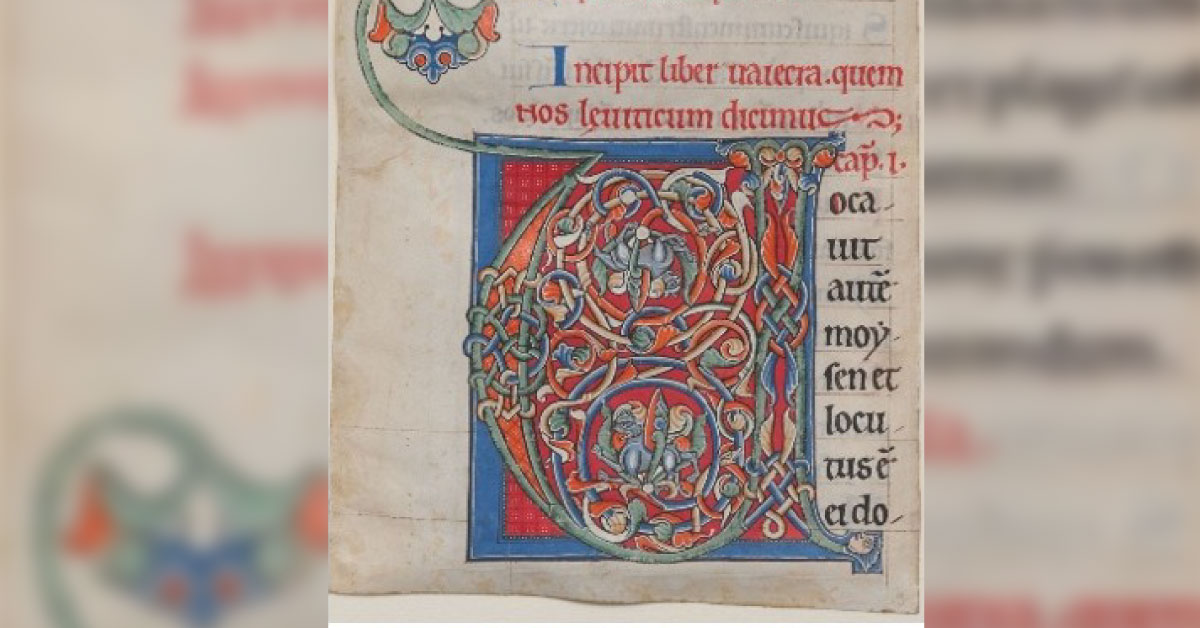 Incipit liber uaiecra. quem
nos leuiticum dicimus;
cap̃. 1.
Uoca
uit
autē
moy
sen et
locu
tus ē
ei do